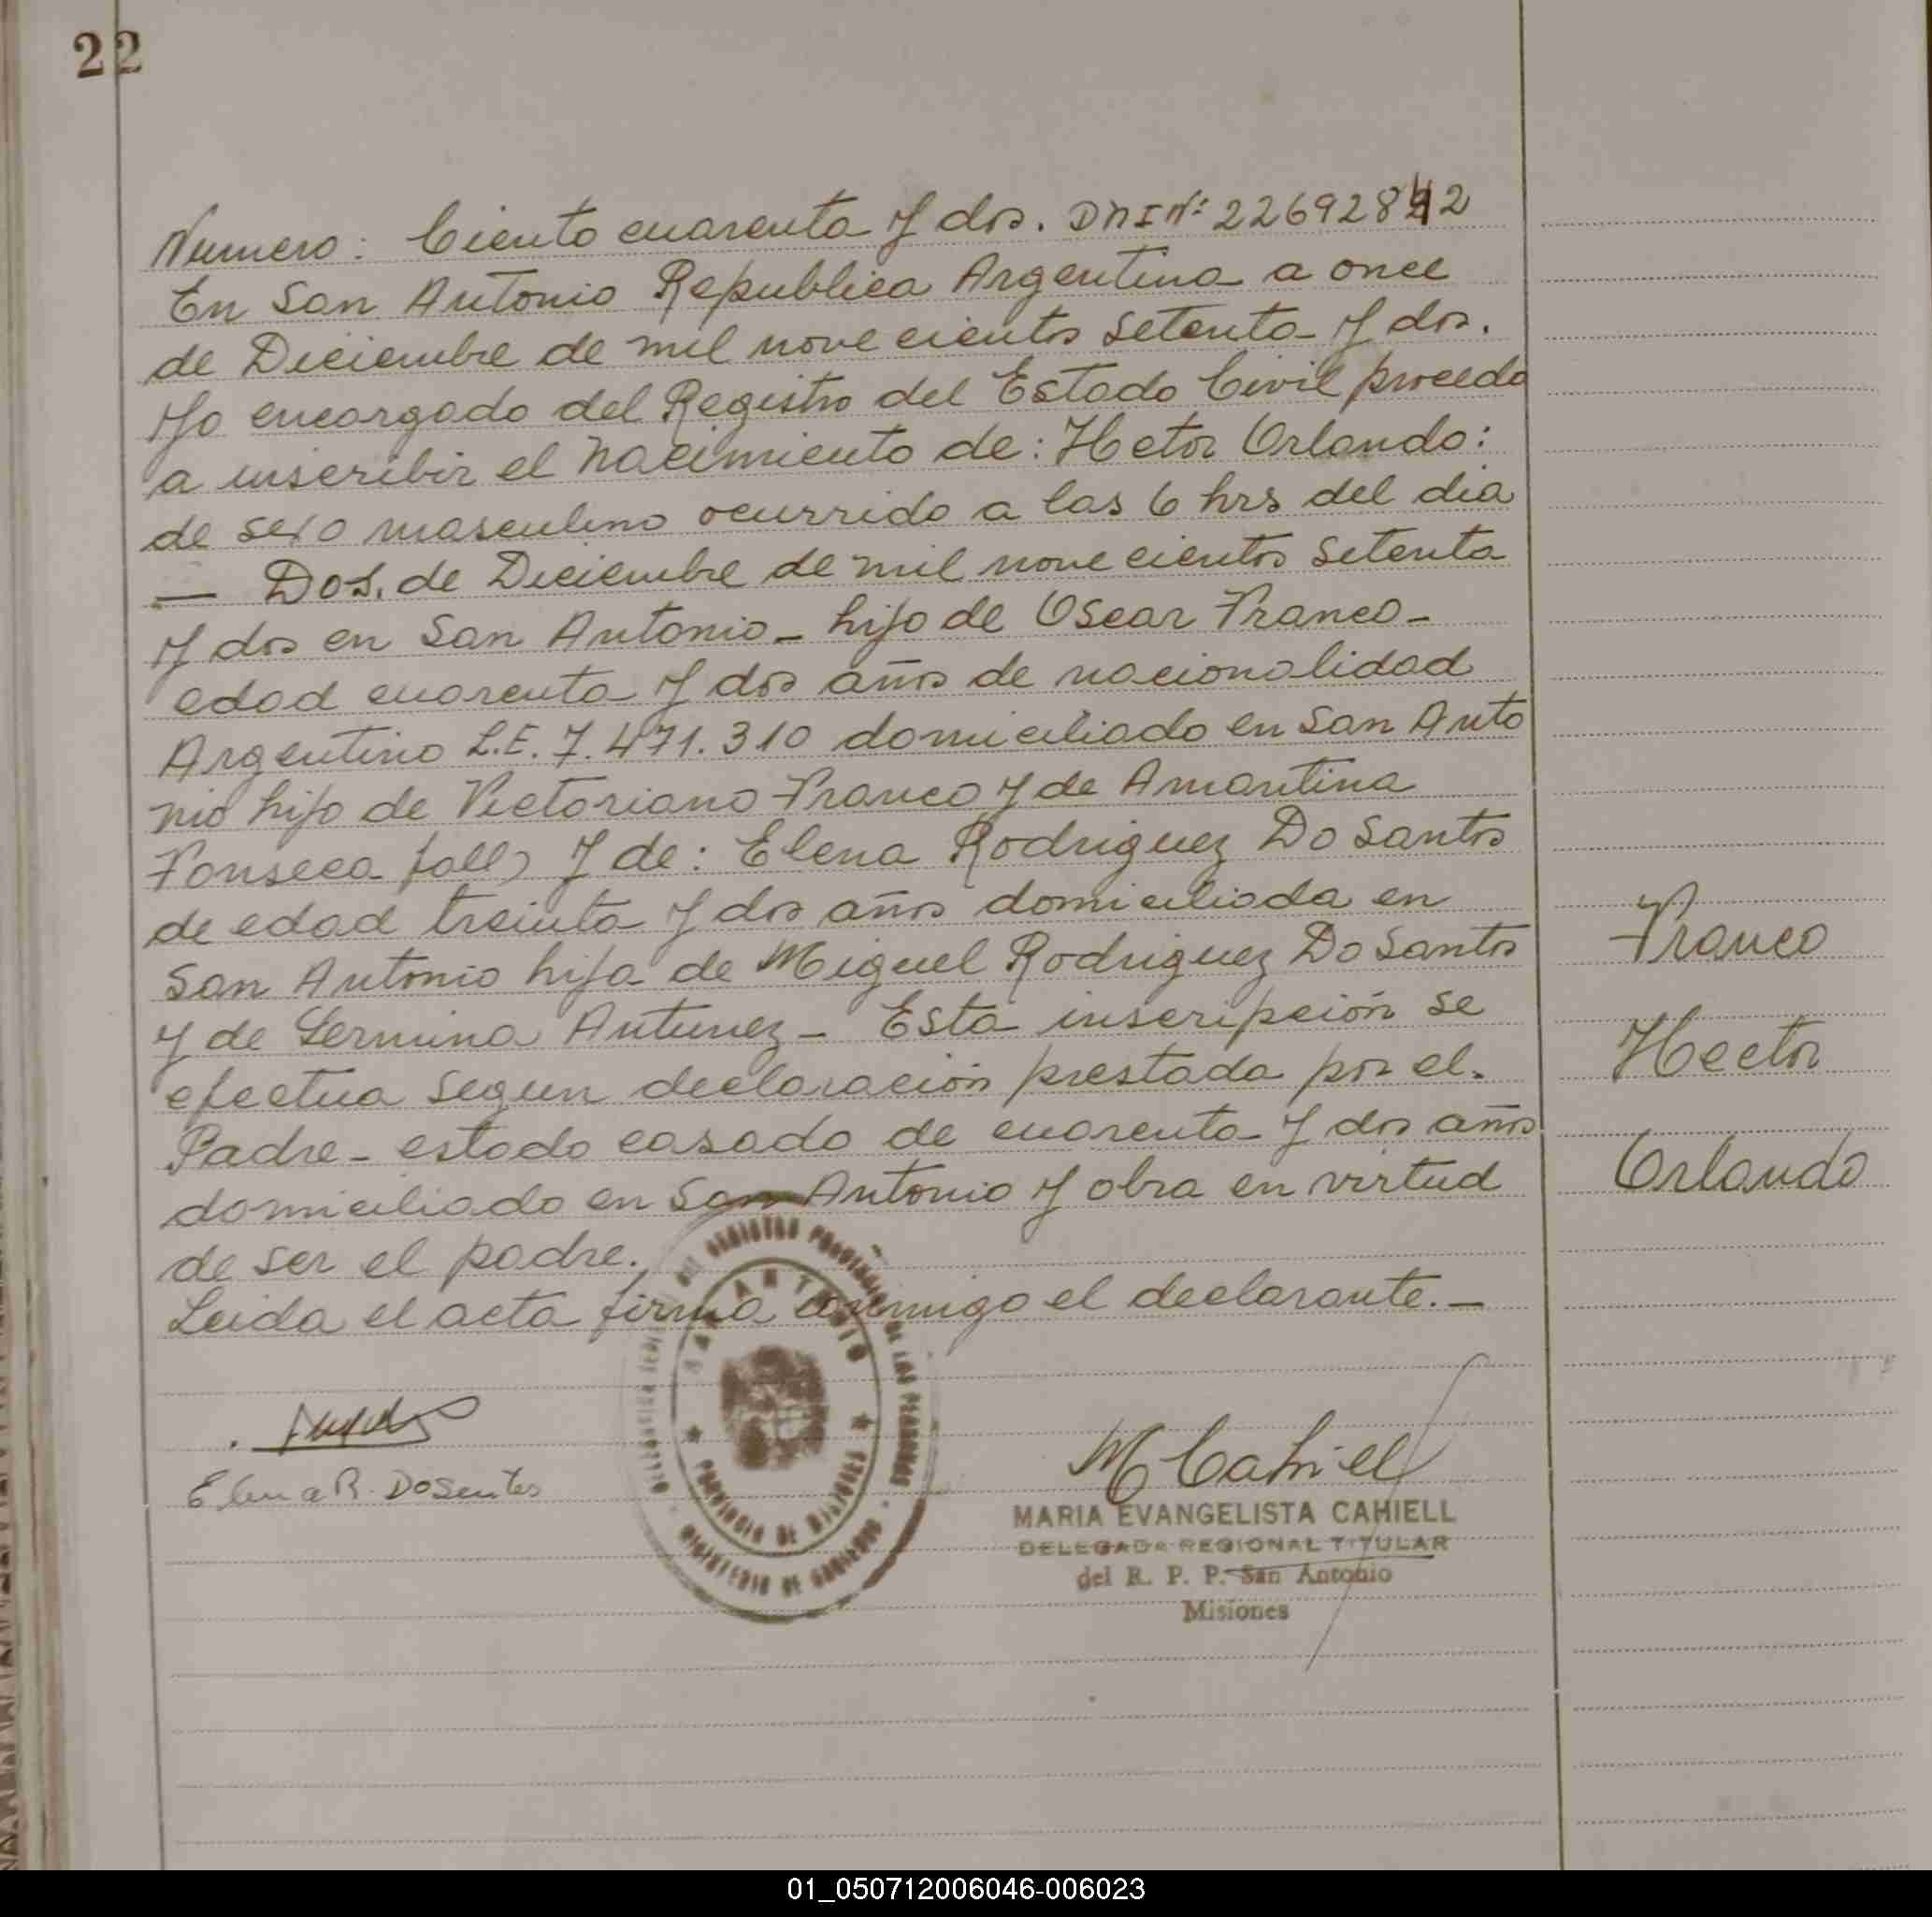 22
Numero: Ciento cuarenta y dos. DNI Nº 226928
En San Antonio Republica Argentina a once
de Diciembre de mil nove cientos setenta y dos.
Yo encargado del Registro del Estado Civil procedo
a inscribir el nacimiento de: Hector Orlando:
de sexo masculino ocurrido a las 6 hrs del dia
— Dos. de Diciembre de mil nove cientos setenta
y dos en San Antonio - hijo de Oscar Franco -
edad cuarenta y dos años de nacionalidad
Argentino L.E. 7.471.310 domiciliado en San Anto
nio hijo de Victoriano Franco y de Amantina
Fonseca fall) y de: Elena Rodriguez Do Santos
de edad treinta y dos años domiciliada en
San Antonio hija de Miguel Rodriguez Do Santos
y de Antunez - Esta inscripción se
efectua segun declaración prestada por el.
Padre - estado casado de cuarenta y dos años
domiciliado en San Antonio y obra en virtud
de ser el padre.
Leida el acta firma conmigo el declarante. —
Franco
Hector
Orlando
Elena R. DoSantos
REGISTRO PROVINCIAL DE LAS PERSONAS
SAN ANTONIO
PROVINCIA DE MISIONES
MINISTERIO DE GOBIERNO
M Cahiell
MARIA EVANGELISTA CAHIELL
DELEGADA REGIONAL TITULAR
del R. P. P. San Antonio
Misiones
01_050712006046-006023